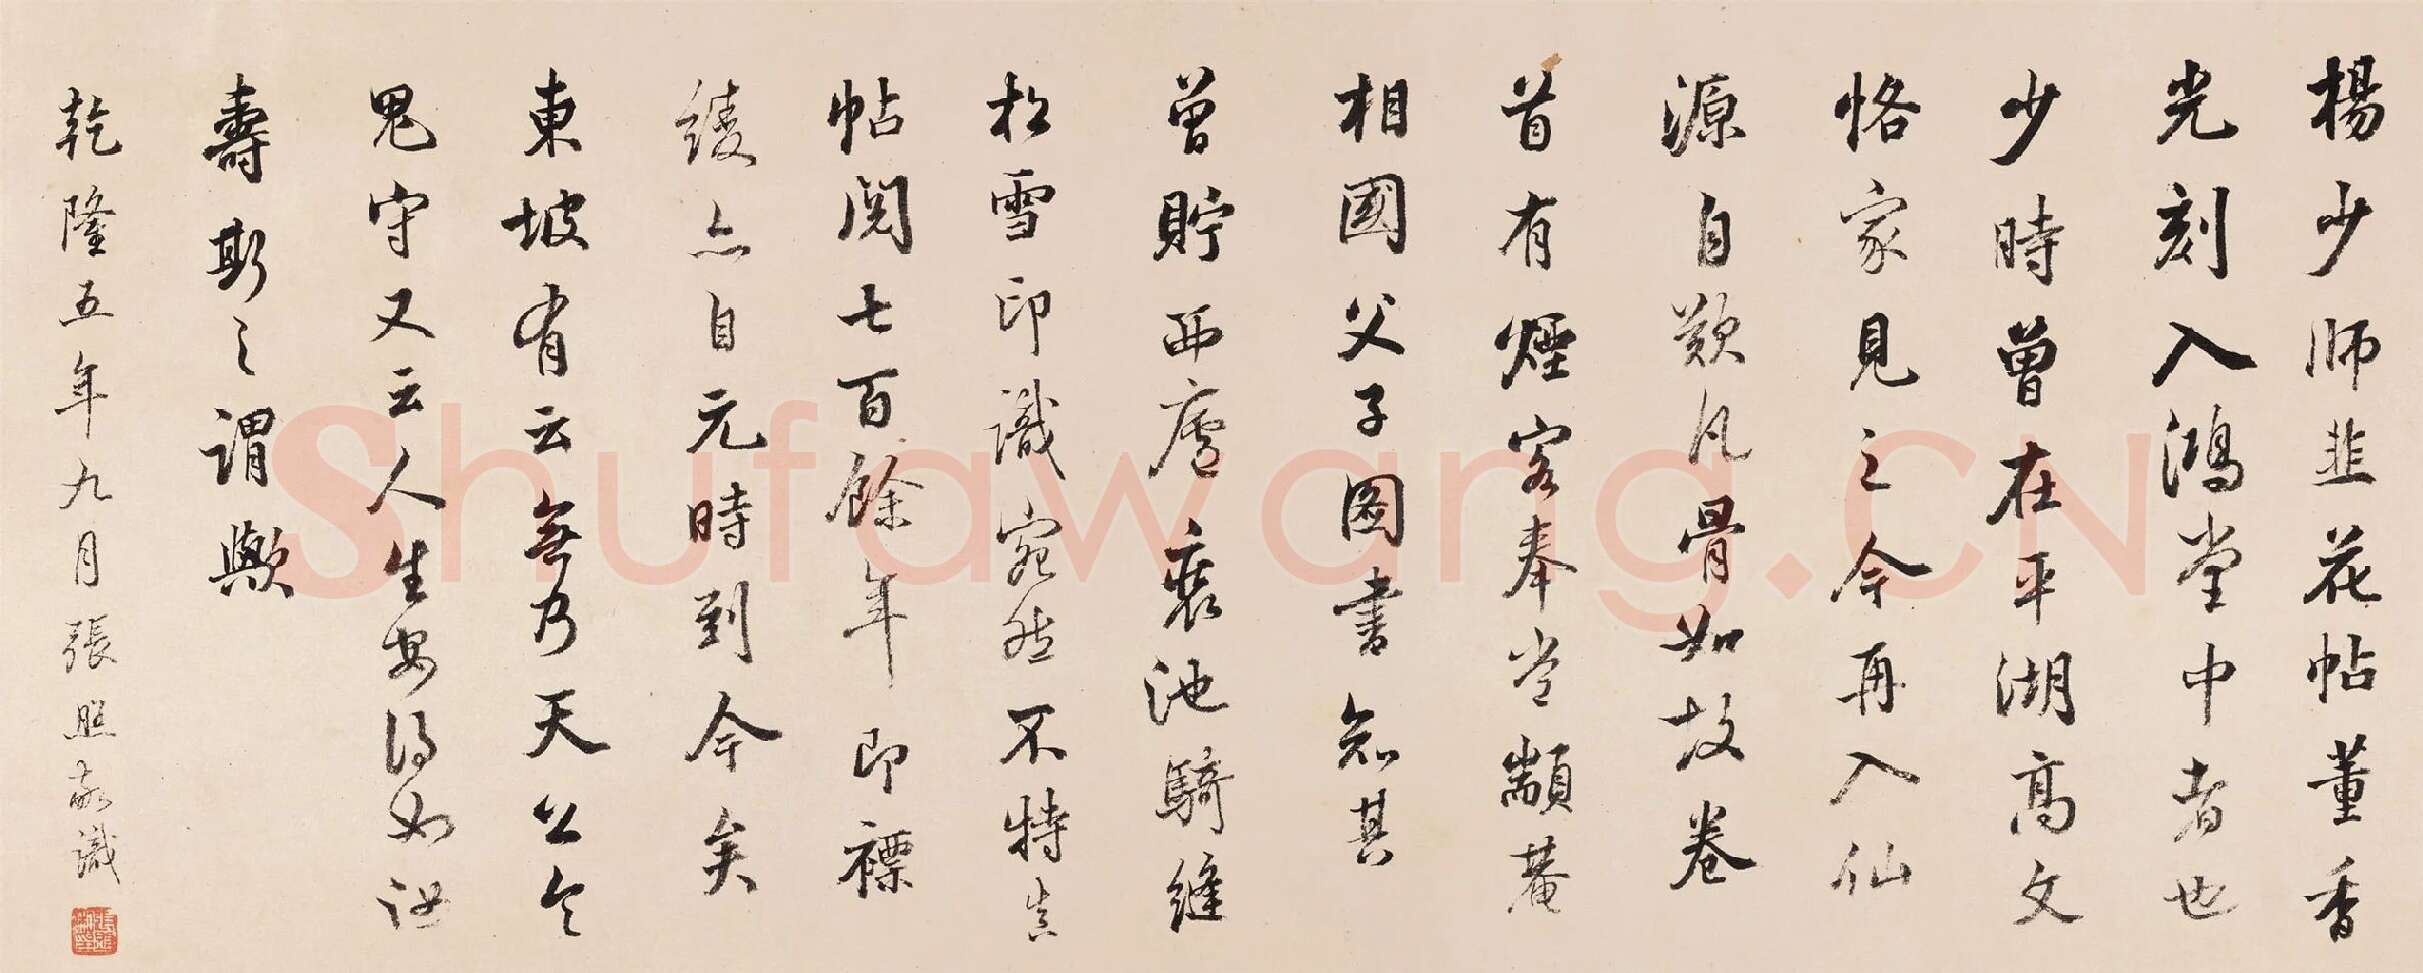 楊少師韭花帖董香
光刻入鴻堂中者也
少時曾在平湖高文
恪家見之今再入仙
源自歎凡骨如故卷
首有煙客奉常顓菴
相國父子圖書知其
曾貯西廬裹池騎縫
松雪印識宛然不特真
帖閱七百餘年即褾
綾亦自元時到今矣
東坡有云無乃天公令
鬼守又云人生安得如汝
壽斯之謂歟
乾隆五年九月張照敬識
Shufawang.CN